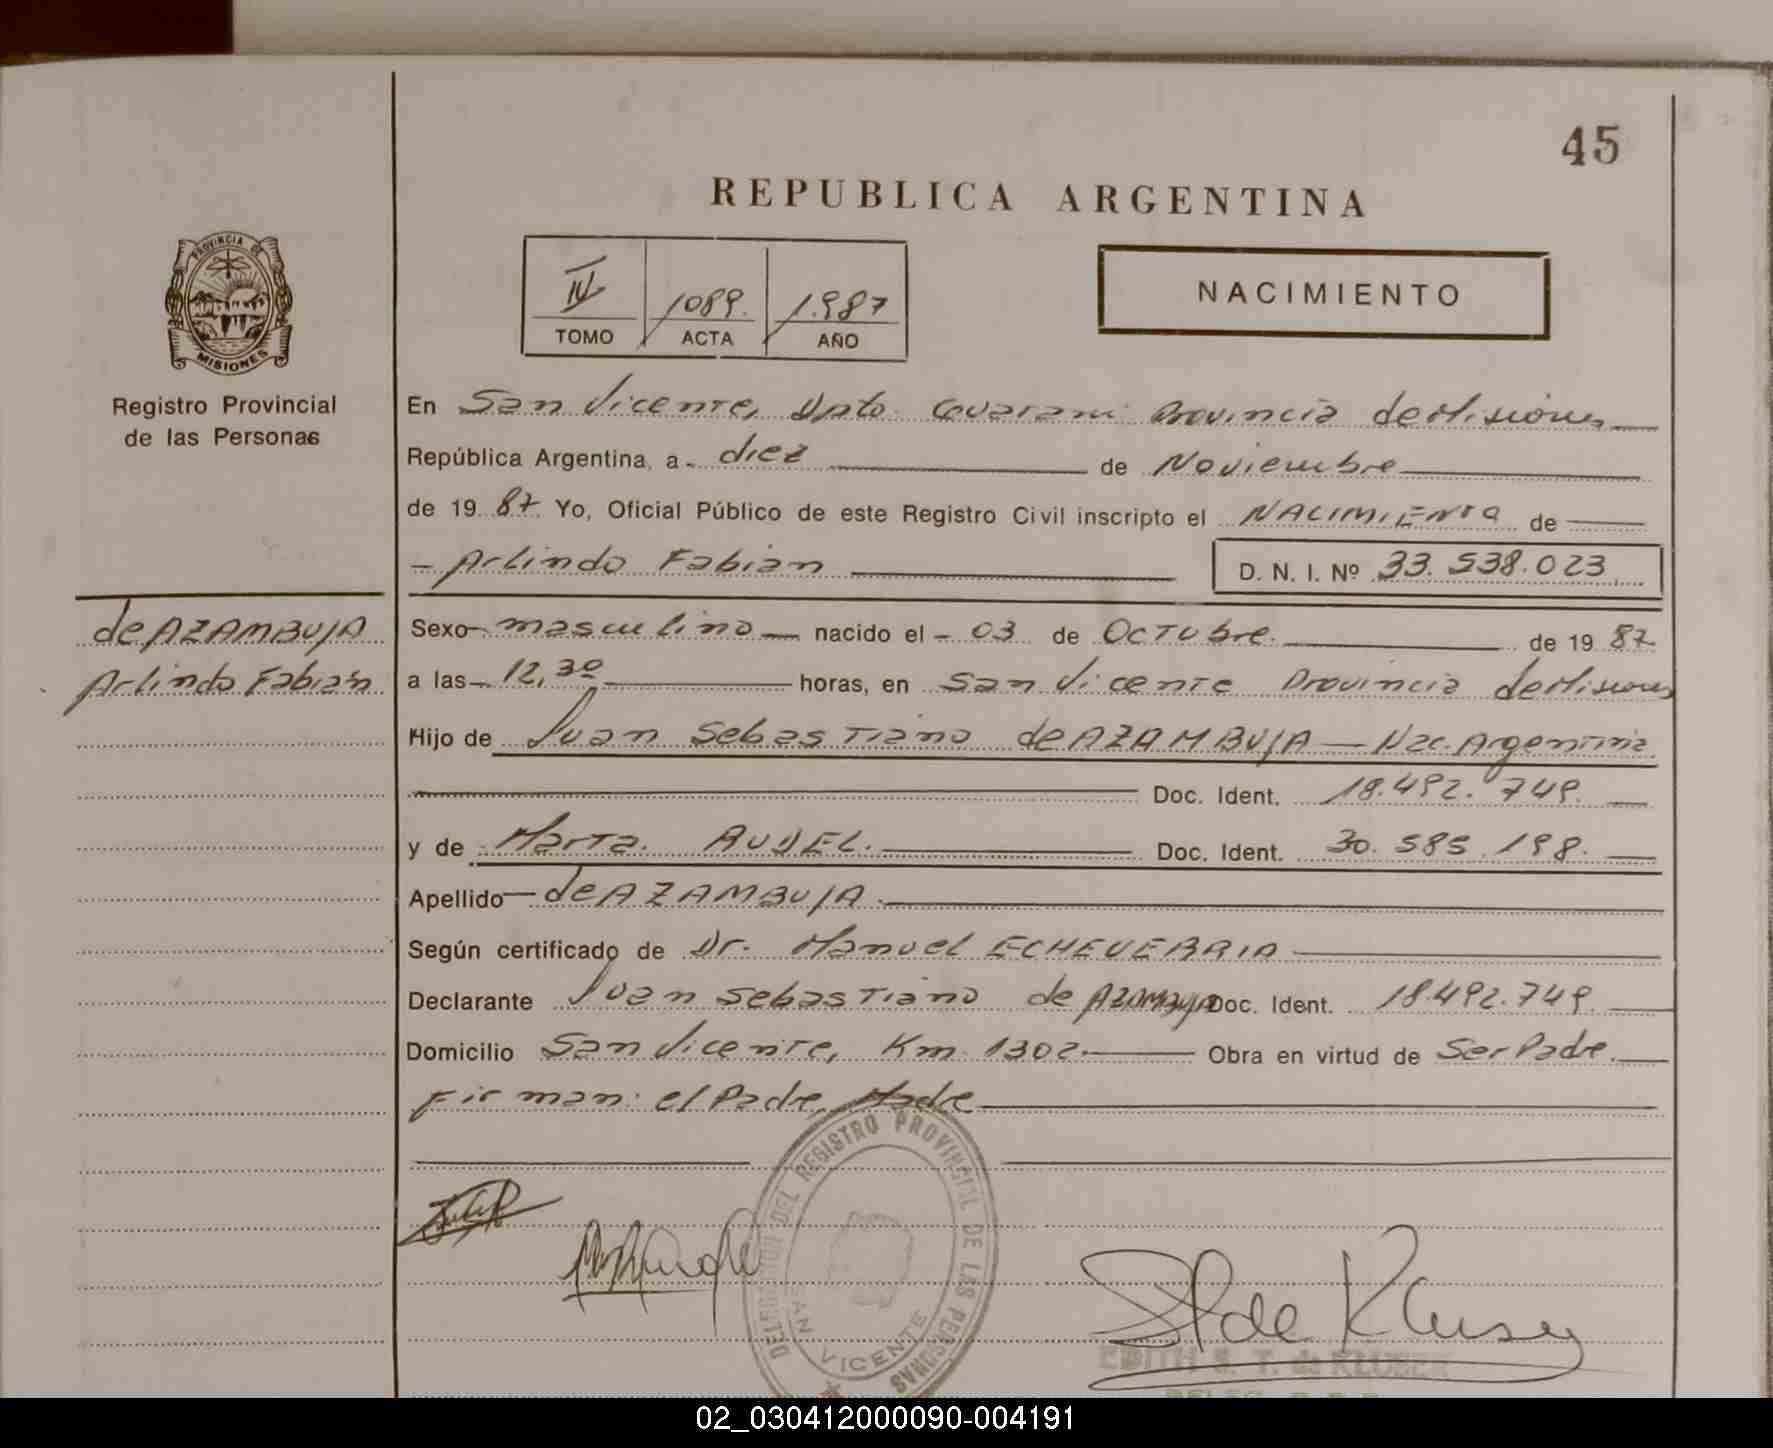 45
REPUBLICA ARGENTINA
IV 1089. 1.987
TOMO ACTA AÑO
NACIMIENTO
PROVINCIA DE
MISIONES
Registro Provincial
de las Personas
En San Vicente, Dpto. Guarani Provincia de Misiones
República Argentina, a diez de Noviembre
de 19 87 Yo, Oficial Público de este Registro Civil inscripto el NACIMIENTO de
- Arlindo Fabian
D. N. I. Nº 33.538.023
de AZAMBUJA
Arlindo Fabián
Sexo masculino nacido el - 03 de Octubre. de 19 87.
a las 12,30 horas, en San Vicente Provincia de Misiones
Hijo de Juan Sebastiano de AZAMBUJA - Nac. Argentina
Doc. Ident. 18.492.749.
y de Marta. Doc. Ident. 30.585.198.
Apellido - de AZAMBUJA.
Según certificado de Dr. Manuel ECHEVERRIA
Declarante Juan Sebastiano de AZAMBUJA Doc. Ident. 18.492.749.
Domicilio San Vicente, Km. 1302. Obra en virtud de Ser Padre.
Firman: el Padre, Madre
DELEGACION DEL REGISTRO PROVINCIAL DE LAS PERSONAS
SAN VICENTE
EDITH S. T. de KLUBER
02_030412000090-004191